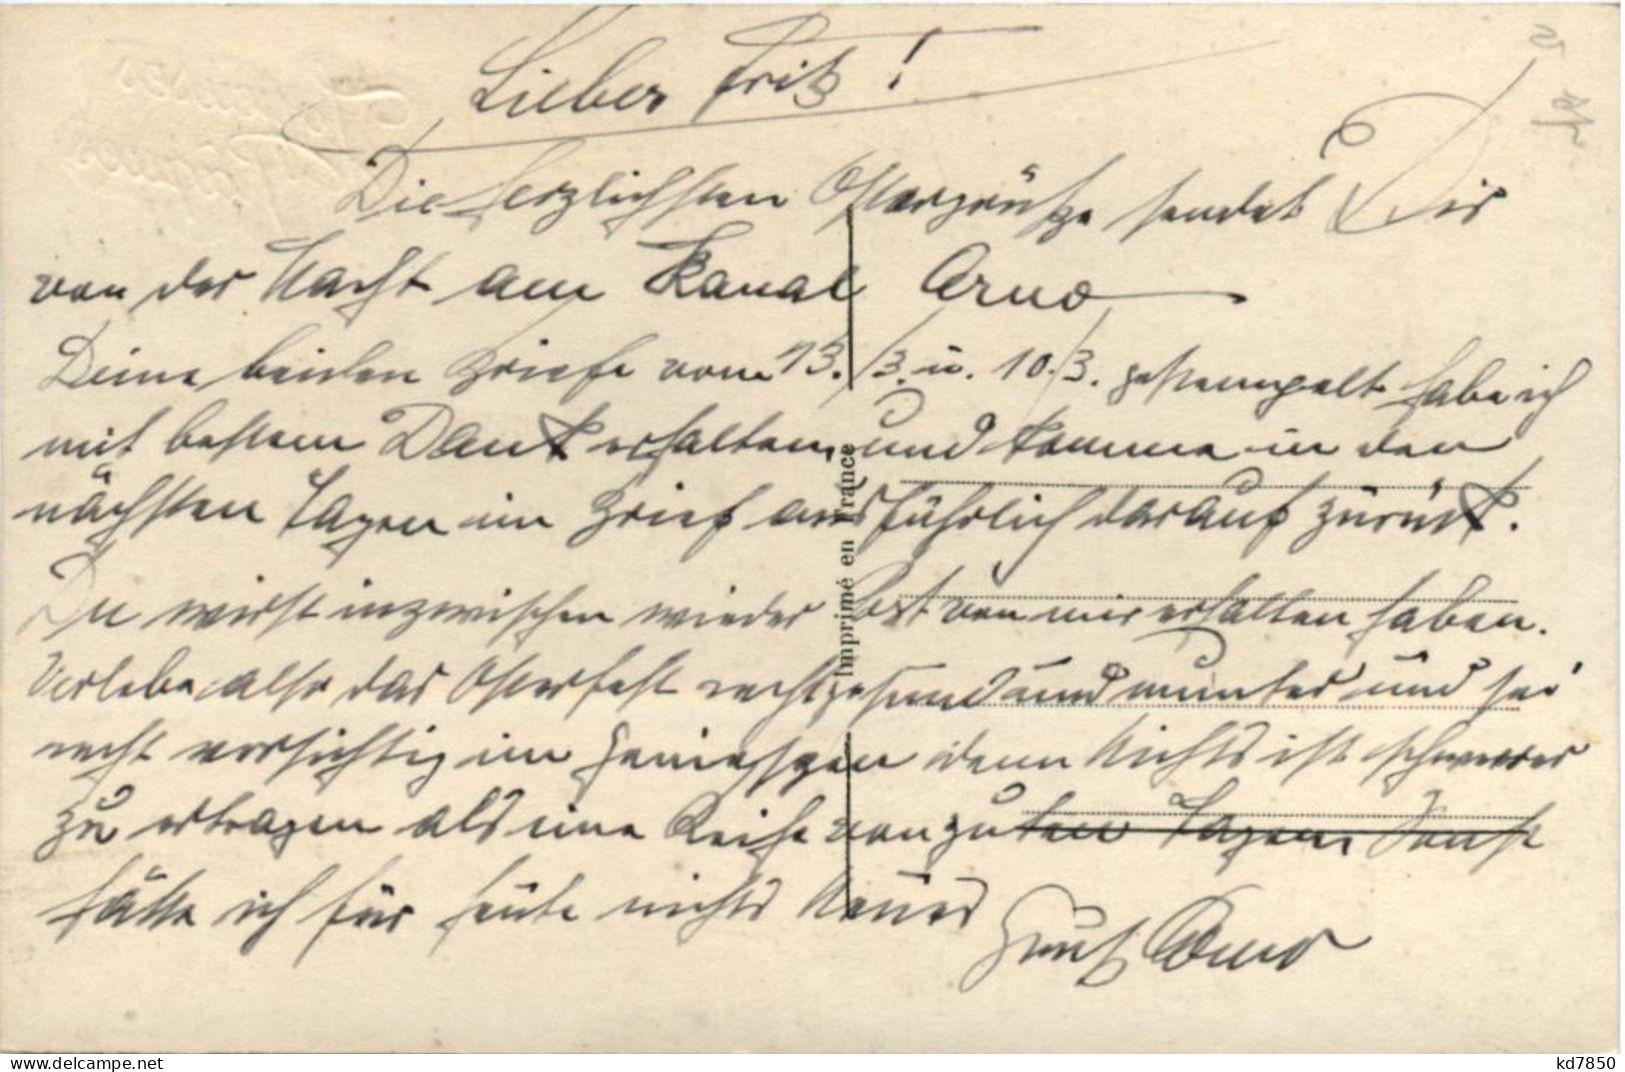 Lieber Fritz!
Die herzlichsten Ostergrüsse sendet Dir
von der Wacht am Kanal Arno
Deine beiden Briefe vom 13./3. u. 10./3. gestempelt habe ich
mit bestem Dank erhalten und komme in den
nächsten Tagen im Brief ausführlich darauf zurück.
Du wirst inzwischen wieder Post von mir erhalten haben.
Verlebe also das Osterfest recht gesund und munter und sei
recht vorsichtig im Geniessen denn Nichts ist schwerer
zu ertragen als eine Reihe von guten Tagen, Sonst
hätte ich für heute nichts Neues
Gruß Arno
Imprimé en France
kd7850
delcampe.net